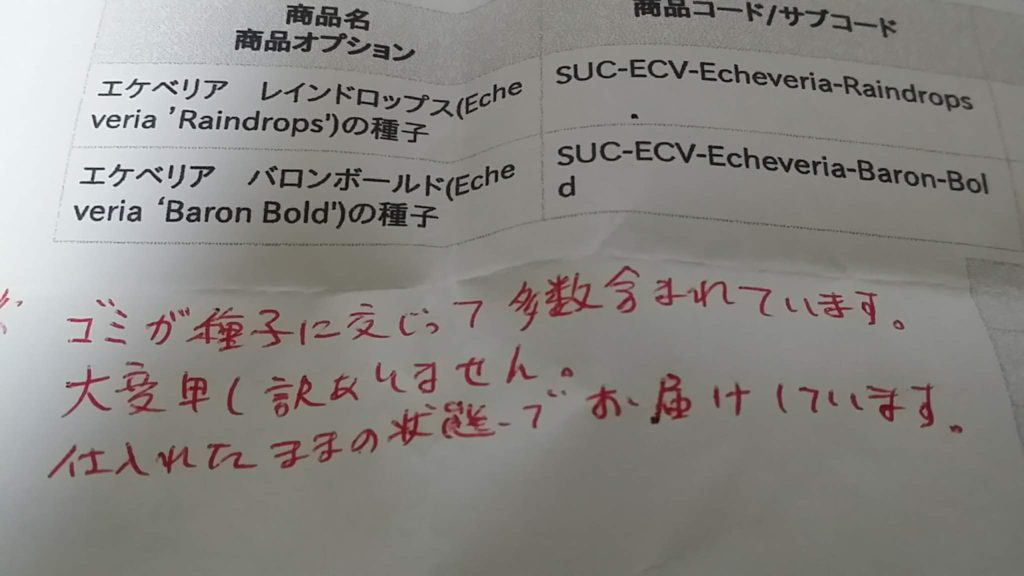 商品名
商品オプション
商品コード/サブコード
エケベリア　レインドロップス(Eche
veria ’Raindrops')の種子
SUC-ECV-Echeveria-Raindrops
エケベリア　バロンボールド(Eche
veria ‘Baron Bold')の種子
SUC-ECV-Echeveria-Baron-Bol
d
ゴミが種子に交じって多数含まれています。
大変申し訳ありません。
仕入れたままの状態でお届けしています。